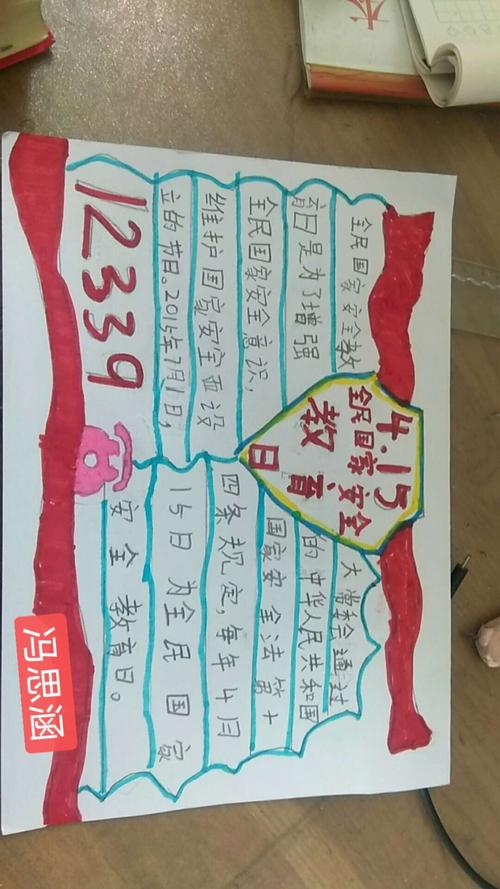 4.15
全民国家安全
教育
日
全民国家安全教
育日是为了增强
全民国家安全意识,
维护国家安全而设
立的节日。2015年7月1日,
大常 通对
的中华人民共和国
国家安全法第十
四条规定,每年4月
15日为全民国家
安全教育日。
12339
冯思涵